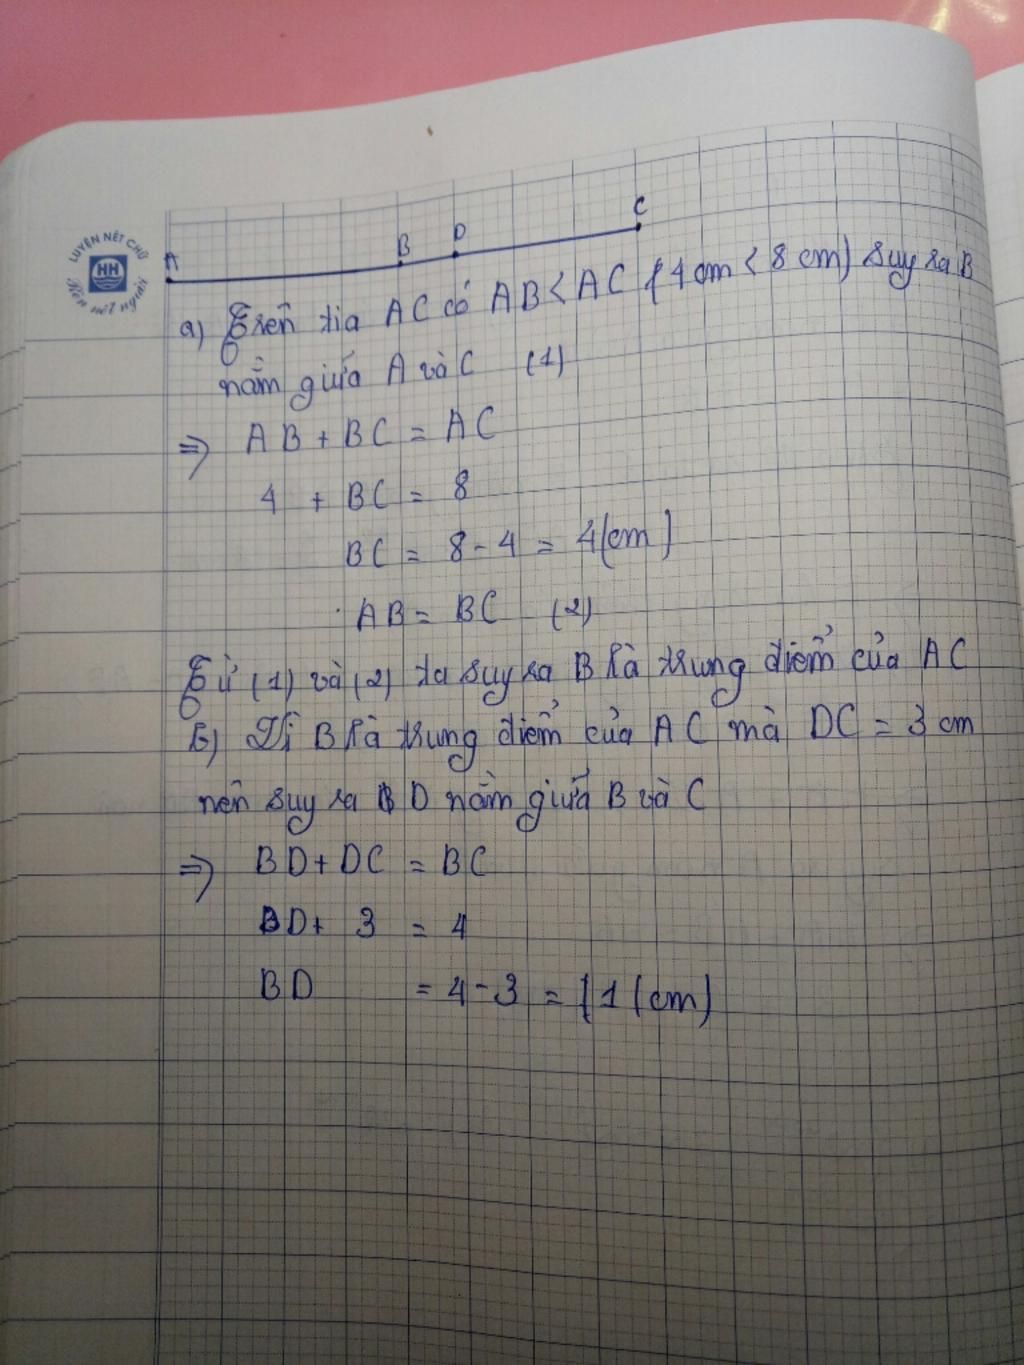 A B D C
LUYỆN NÉT CHỮ
HH
Rèn nết người
a) Trên tia AC có AB < AC (4 cm < 8 cm) suy ra B
nằm giữa A và C (1)
=> AB + BC = AC
4 + BC = 8
BC = 8 - 4 = 4(cm)
AB = BC (2)
Từ (1) và (2) ta suy ra B là trung điểm của AC
b) Vì B là trung điểm của AC mà DC = 3 cm
nên suy ra D nằm giữa B và C
=> BD + DC = BC
BD + 3 = 4
BD = 4 - 3 = 1 (cm)